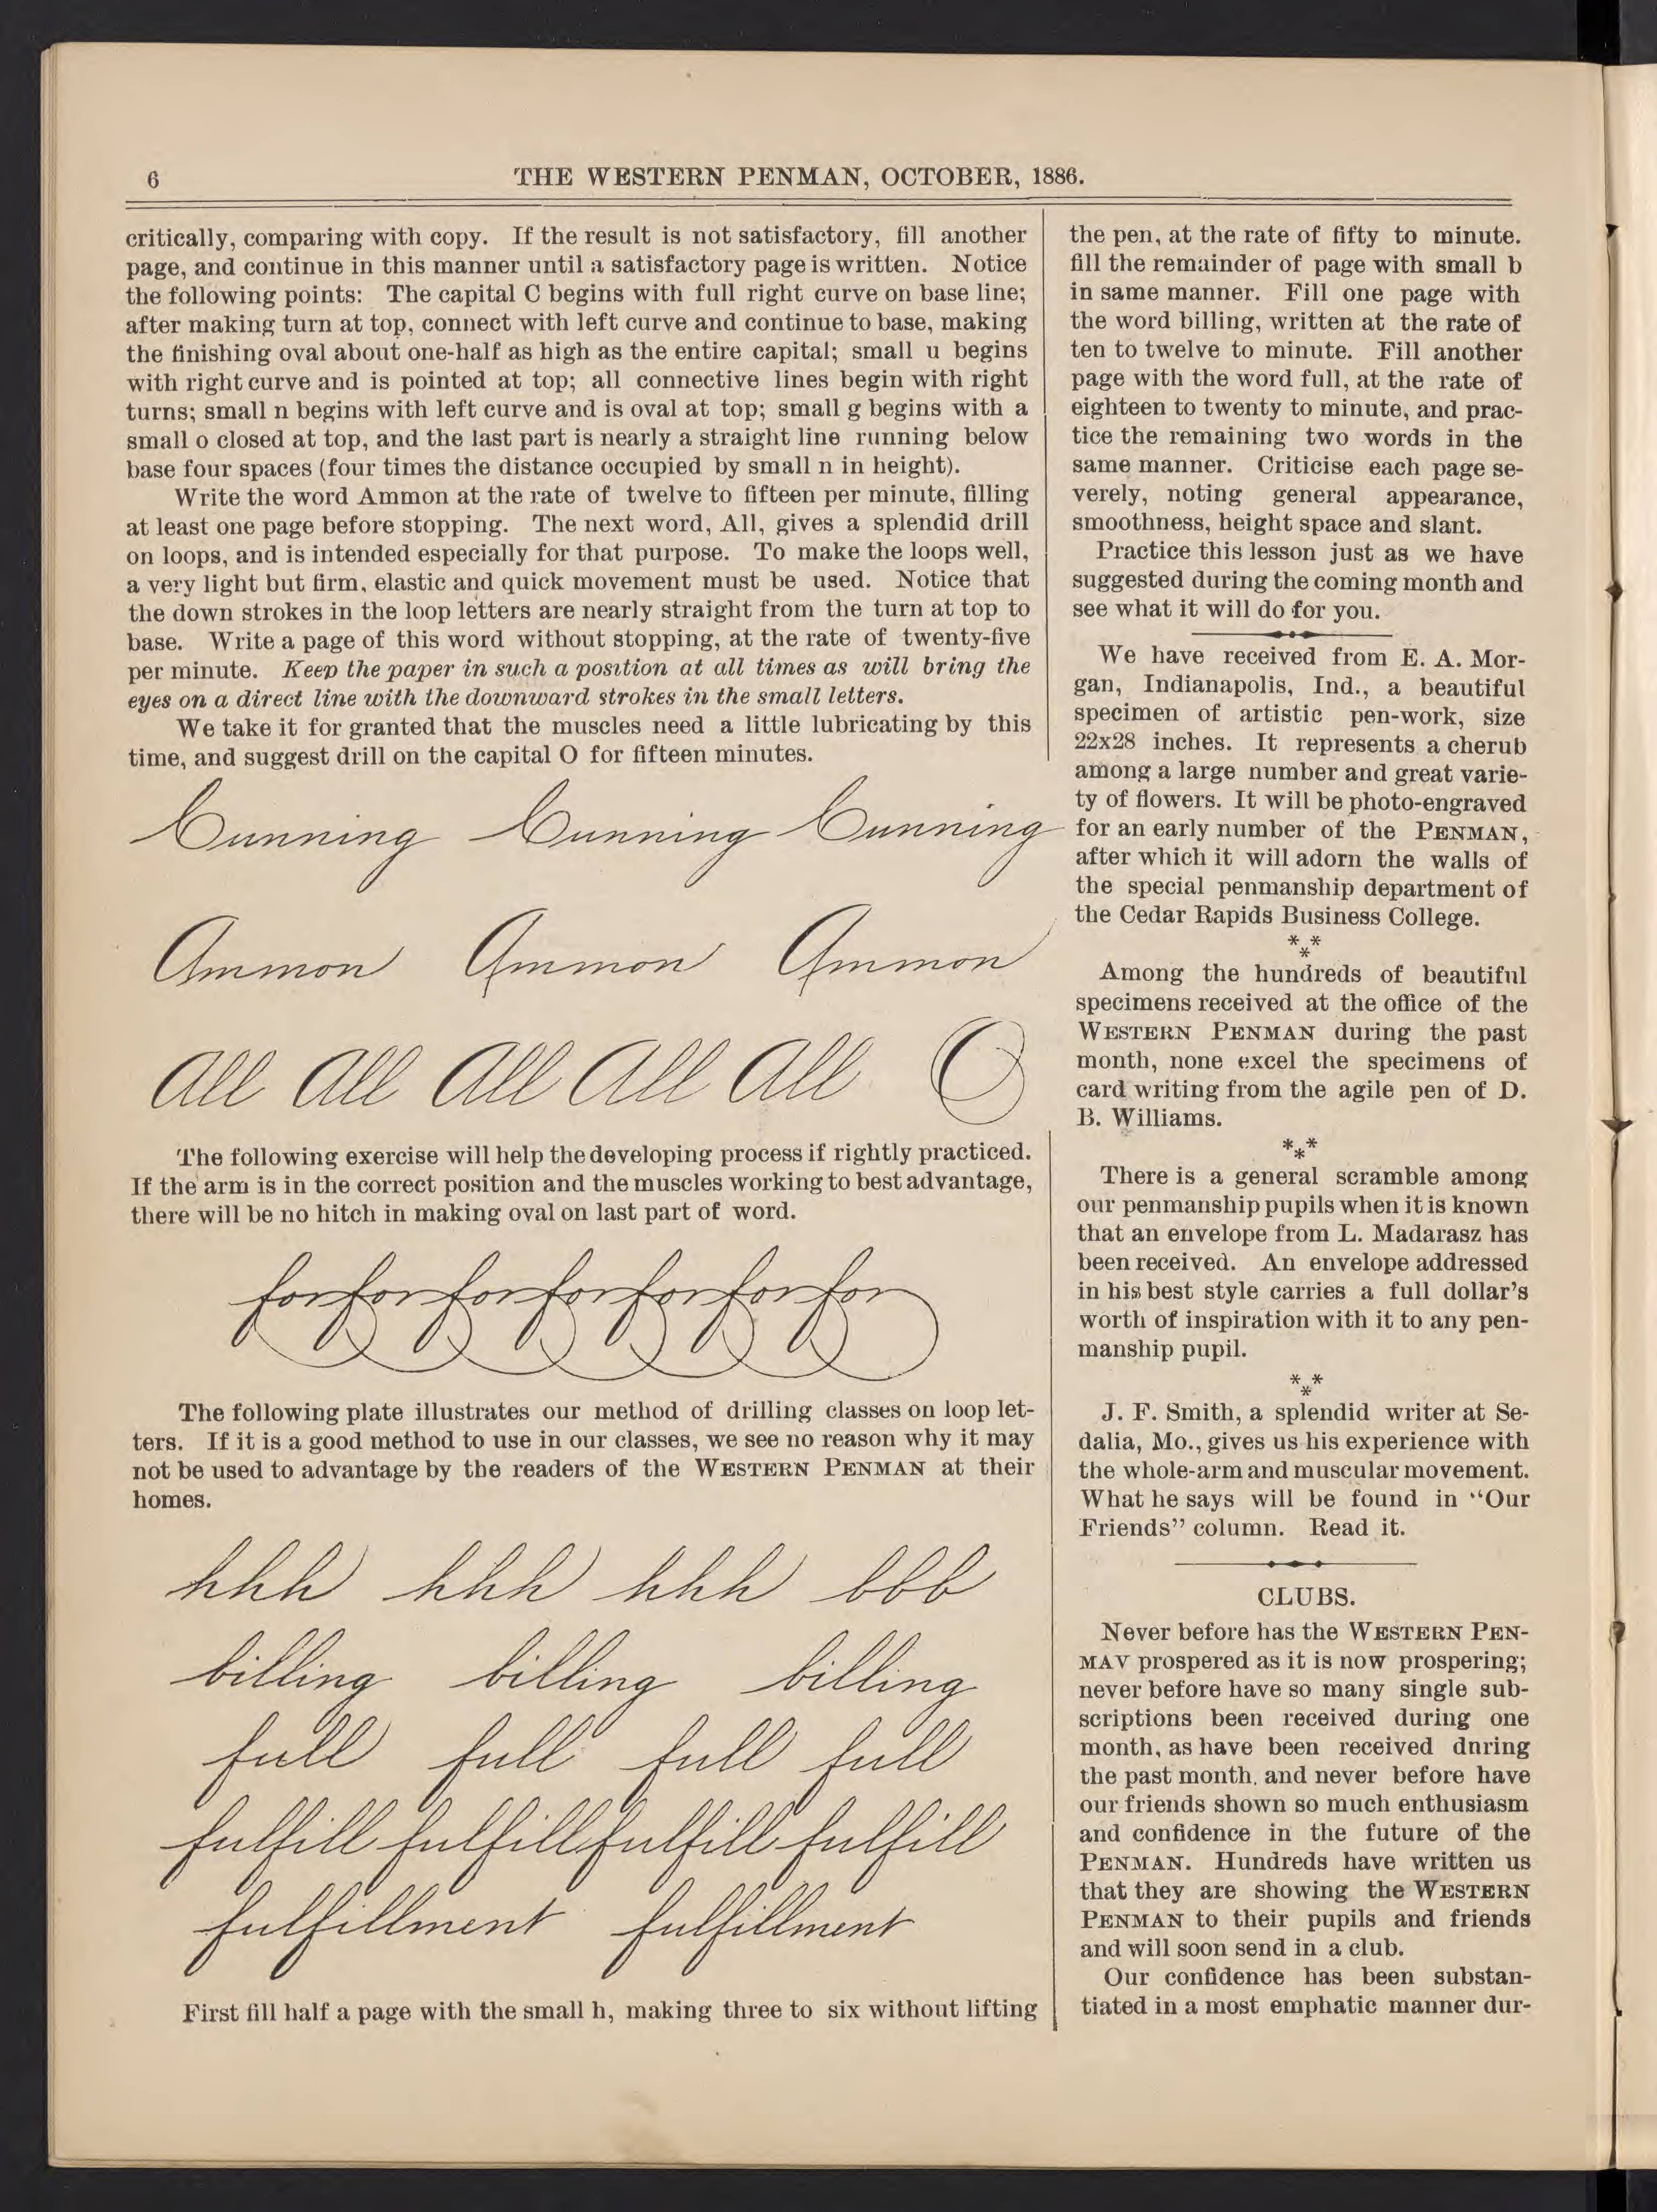 6
THE WESTERN PENMAN, OCTOBER, 1886.
critically, comparing with copy. If the result is not satisfactory, fill another
page, and continue in this manner until a satisfactory page is written. Notice
the following points: The capital C begins with full right curve on base line;
after making turn at top, connect with left curve and continue to base, making
the finishing oval about one-half as high as the entire capital; small u begins
with right curve and is pointed at top; all connective lines begin with right
turns; small n begins with left curve and is oval at top; small g begins with a
small o closed at top, and the last part is nearly a straight line running below
base four spaces (four times the distance occupied by small n in height).
Write the word Ammon at the rate of twelve to fifteen per minute, filling
at least one page before stopping. The next word, All, gives a splendid drill
on loops, and is intended especially for that purpose. To make the loops well,
a very light but firm, elastic and quick movement must be used. Notice that
the down strokes in the loop letters are nearly straight from the turn at top to
base. Write a page of this word without stopping, at the rate of twenty-five
per minute. Keep the paper in such a position at all times as will bring the
eyes on a direct line with the downward strokes in the small letters.
We take it for granted that the muscles need a little lubricating by this
time, and suggest drill on the capital O for fifteen minutes.
Cunning Cunning Cunning
Ammon Ammon Ammon
All All All All All O
The following exercise will help the developing process if rightly practiced.
If the arm is in the correct position and the muscles working to best advantage,
there will be no hitch in making oval on last part of word.
for for for for for for for
The following plate illustrates our method of drilling classes on loop let-
ters. If it is a good method to use in our classes, we see no reason why it may
not be used to advantage by the readers of the WESTERN PENMAN at their
homes.
hhh hhh hhh bbb
billing billing billing
full full full full
fulfill fulfill fulfill fulfill
fulfillment fulfillment
First fill half a page with the small h, making three to six without lifting
the pen, at the rate of fifty to minute.
fill the remainder of page with small b
in same manner. Fill one page with
the word billing, written at the rate of
ten to twelve to minute. Fill another
page with the word full, at the rate of
eighteen to twenty to minute, and prac-
tice the remaining two words in the
same manner. Criticise each page se-
verely, noting general appearance,
smoothness, height space and slant.
Practice this lesson just as we have
suggested during the coming month and
see what it will do for you.
We have received from E. A. Mor-
gan, Indianapolis, Ind., a beautiful
specimen of artistic pen-work, size
22x28 inches. It represents a cherub
among a large number and great varie-
ty of flowers. It will be photo-engraved
for an early number of the PENMAN,
after which it will adorn the walls of
the special penmanship department of
the Cedar Rapids Business College.
***
Among the hundreds of beautiful
specimens received at the office of the
WESTERN PENMAN during the past
month, none excel the specimens of
card writing from the agile pen of D.
B. Williams.
***
There is a general scramble among
our penmanship pupils when it is known
that an envelope from L. Madarasz has
been received. An envelope addressed
in his best style carries a full dollar's
worth of inspiration with it to any pen-
manship pupil.
***
J. F. Smith, a splendid writer at Se-
dalia, Mo., gives us his experience with
the whole-arm and muscular movement.
What he says will be found in "Our
Friends" column. Read it.
CLUBS.
Never before has the WESTERN PEN-
MAV prospered as it is now prospering;
never before have so many single sub-
scriptions been received during one
month, as have been received dnring
the past month, and never before have
our friends shown so much enthusiasm
and confidence in the future of the
PENMAN. Hundreds have written us
that they are showing the WESTERN
PENMAN to their pupils and friends
and will soon send in a club.
Our confidence has been substan-
tiated in a most emphatic manner dur-